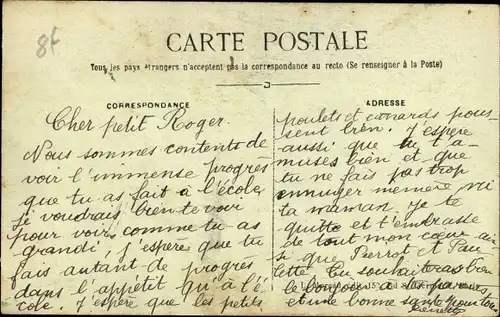 8f
CARTE POSTALE
Tous les pays étrangers n'acceptent pas la correspondance au recto (Se renseigner à la Poste)
CORRESPONDANCE
Cher petit Roger.
Nous sommes contents de
voir l'immense progrès
que tu as fait à l'école,
je voudrais bien te voir
pour voir comme tu as
grandi, j'espère que tu
fais autant de progrès
dans l'appétit qu'à l'é-
cole. J'espère que les petits
ADRESSE
poulets et canards pous-
sent bien. J'espère
aussi que tu t'a-
muses bien et que
tu ne fais pas trop
ennuyer mémère ni
ta maman. Je te
quitte et t'embrasse
de tout mon cœur ain
si que Pierrot et Pau-
lette. Tu souhaiteras bien
le bonjour à
et une bonne santé pour tous